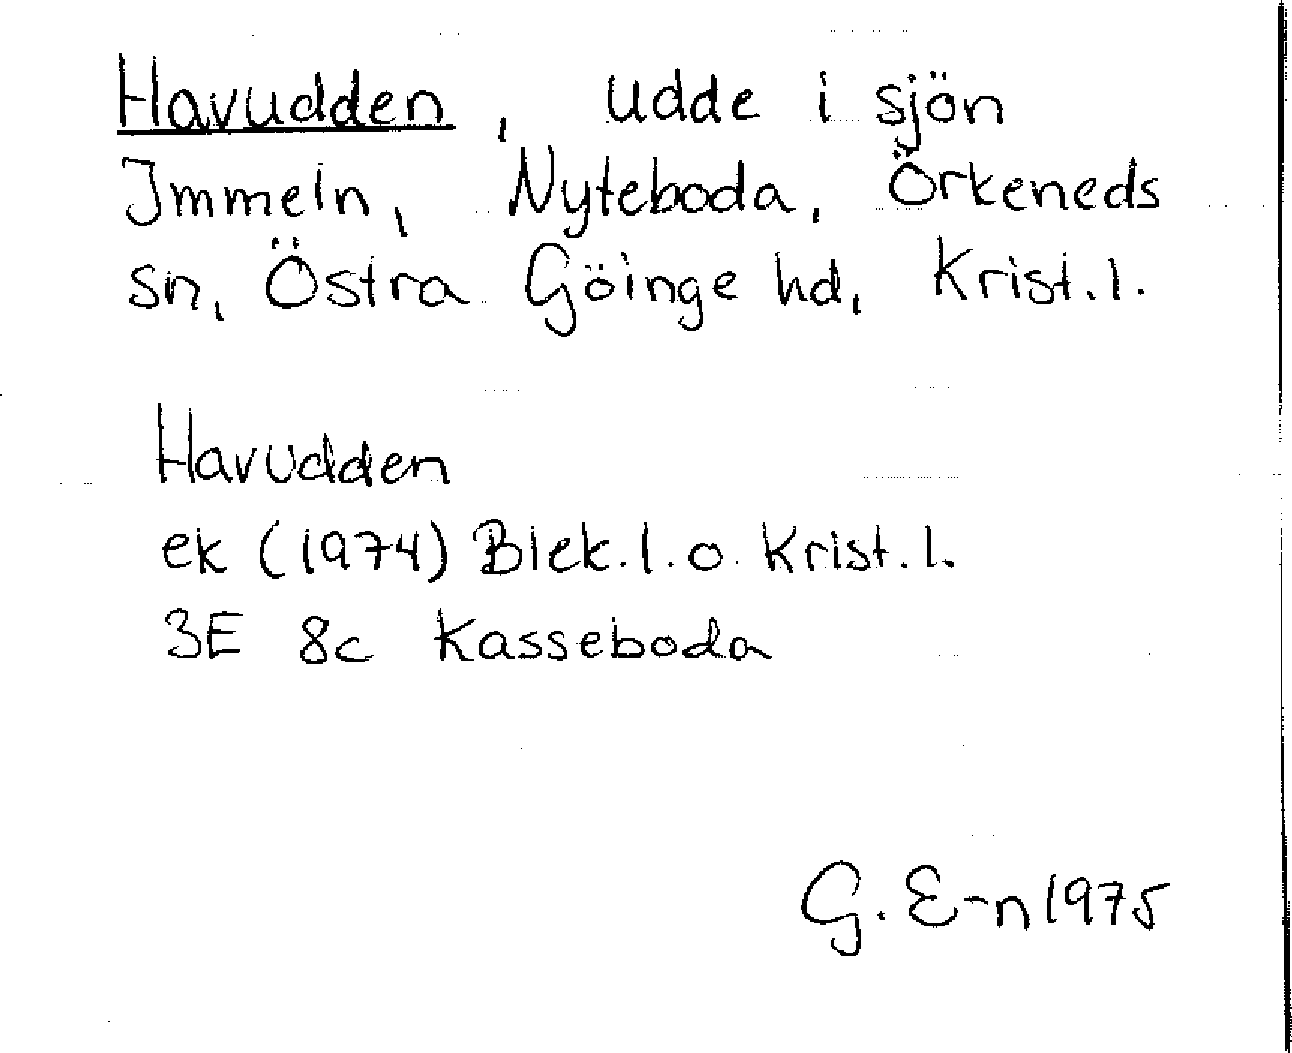 Havudden, udde i sjön
Immeln, Nyteboda, Örkeneds
sn, Östra Göinge hd, Krist.l.
Havudden
ek (1974) Blek.l.o. Krist.l.
3E 8c Kasseboda
G. E-n 1975